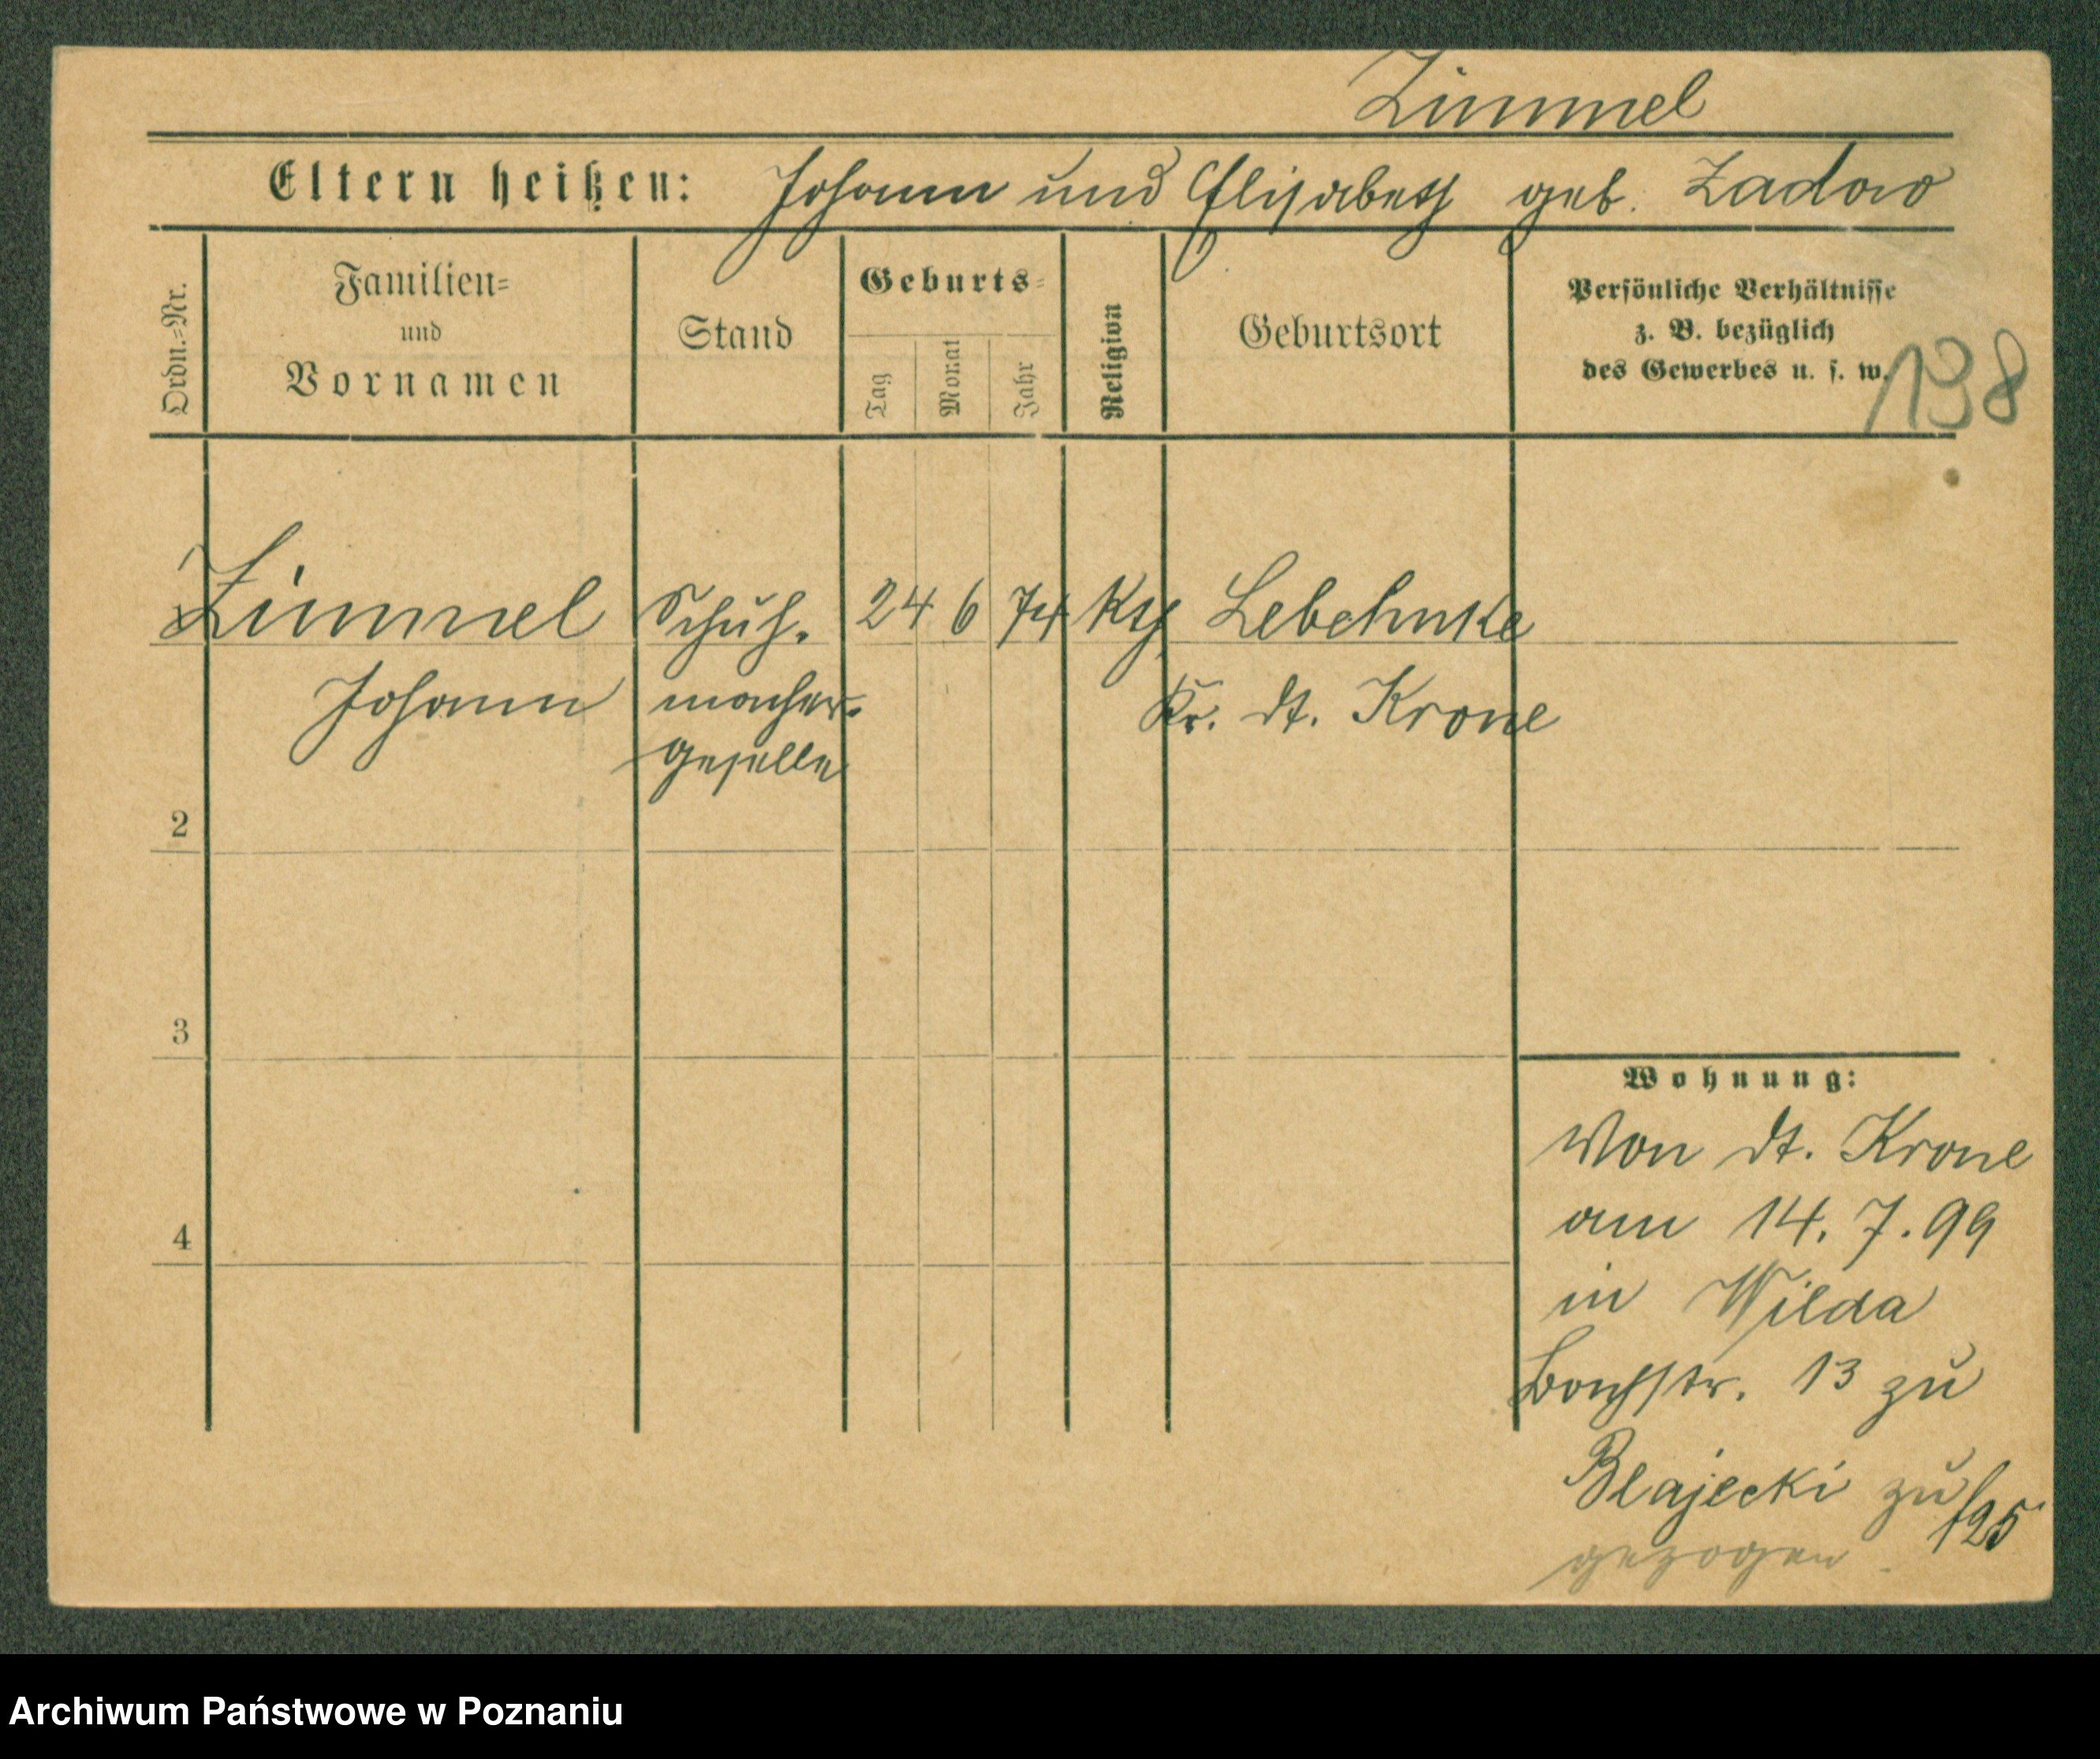 Zimmel
Eltern heißen: Johann und Elisabeth geb. Zadow
Ordn.=Nr.
Familien=
und
Vornamen
Stand
Geburts=
Tag
Monat
Jahr
Religion
Geburtsort
Persönliche Verhältnisse
z. B. bezüglich
des Gewerbes u. s. w.
138
Zimmel Schuh- 24 6 74 kth Lebehnke
Johann macher- Kr. Dt. Krone
geselle
2
3
4
Wohnung:
Von Dt. Krone
am 14. 7. 99
in Wilda
Bachstr. 13 zu
Blajecki zu
gezogen